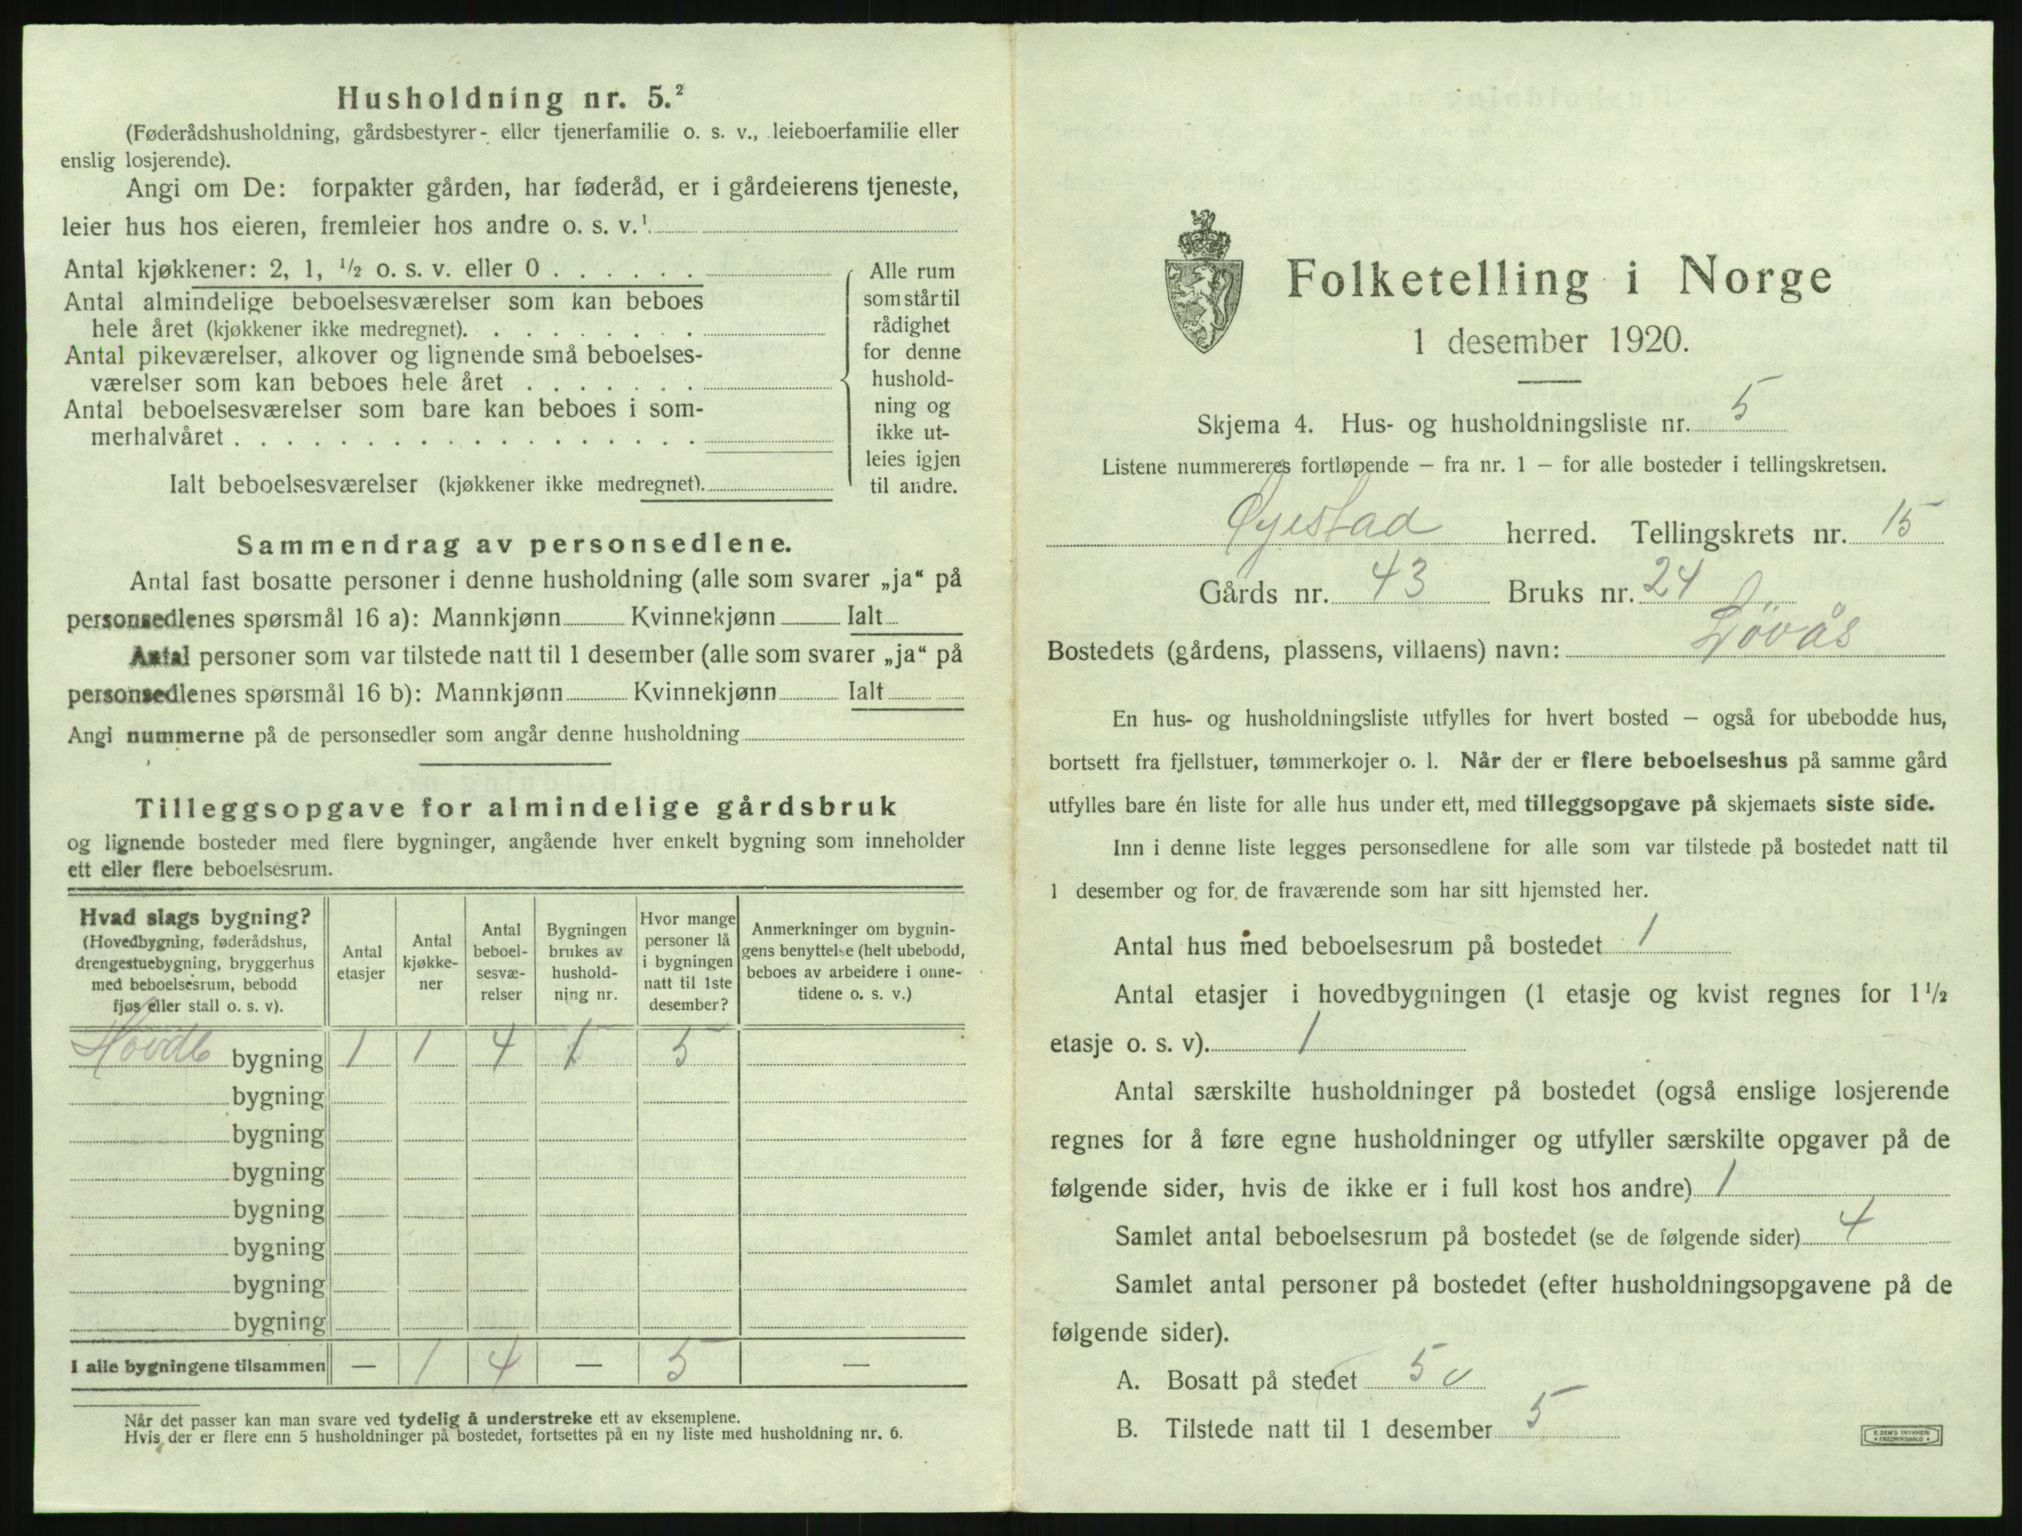 Husholdning nr. 5.²
(Føderådshusholdning, gårdsbestyrer- eller tjenerfamilie o. s. v., leieboerfamilie eller
enslig losjerende).
Angi om De: forpakter gården, har føderåd, er i gårdeierens tjeneste,
leier hus hos eieren, fremleier hos andre o. s. v.¹
Antal kjøkkener: 2, 1, ½ o. s. v. eller 0 . . . . . .
Antal almindelige beboelsesværelser som kan beboes
hele året (kjøkkener ikke medregnet). . . . . . . . .
Antal pikeværelser, alkover og lignende små beboelses-
værelser som kan beboes hele året . . . . . . .
Antal beboelsesværelser som bare kan beboes i som-
merhalvåret . . . . . . . . . . . . . . . . . .
Ialt beboelsesværelser (kjøkkener ikke medregnet).
Alle rum
som står til
rådighet
for denne
hushold-
ning og
ikke ut-
leies igjen
til andre.
Sammendrag av personsedlene.
Antal fast bosatte personer i denne husholdning (alle som svarer „ja“ på
personsedlenes spørsmål 16 a): Mannkjønn Kvinnekjønn Ialt
Antal personer som var tilstede natt til 1 desember (alle som svarer „ja“ på
personsedlenes spørsmål 16 b): Mannkjønn Kvinnekjønn Ialt
Angi nummerne på de personsedler som angår denne husholdning
Tilleggsopgave for almindelige gårdsbruk
og lignende bosteder med flere bygninger, angående hver enkelt bygning som inneholder
ett eller flere beboelsesrum.
Hvad slags bygning?
(Hovedbygning, føderådshus,
drengestuebygning, bryggerhus
med beboelsesrum, bebodd
fjøs eller stall o. s. v).
Antal
etasjer
Antal
kjøkke-
ner
Antal
beboel-
sesvæ-
relser
Bygningen
brukes av
hushold-
ning nr.
Hvor mange
personer lå
i bygningen
natt til 1ste
desember?
Anmerkninger om bygnin-
gens benyttelse (helt ubebodd,
beboes av arbeidere i onne-
tidene o. s. v.)
bygning 1 1 4 1 5
bygning
bygning
bygning
bygning
bygning
bygning
bygning
I alle bygningene tilsammen — 1 4 — 5 —
Når det passer kan man svare ved tydelig å understreke ett av eksemplene.
Hvis der er flere enn 5 husholdninger på bostedet, fortsettes på en ny liste med husholdning nr. 6.
Folketelling i Norge
1 desember 1920.
Skjema 4. Hus- og husholdningsliste nr. 5
Listene nummereres fortløpende – fra nr. 1 – for alle bosteder i tellingskretsen.
Øyestad herred. Tellingskrets nr. 15
Gårds nr. 43 Bruks nr. 24
Bostedets (gårdens, plassens, villaens) navn: Løvås
En hus- og husholdningsliste utfylles for hvert bosted – også for ubebodde hus,
bortsett fra fjellstuer, tømmerkojer o. l. Når der er flere beboelseshus på samme gård
utfylles bare én liste for alle hus under ett, med tilleggsopgave på skjemaets siste side.
Inn i denne liste legges personsedlene for alle som var tilstede på bostedet natt til
1 desember og for de fraværende som har sitt hjemsted her.
Antal hus med beboelsesrum på bostedet 1
Antal etasjer i hovedbygningen (1 etasje og kvist regnes for 1½
etasje o. s. v). 1
Antal særskilte husholdninger på bostedet (også enslige losjerende
regnes for å føre egne husholdninger og utfyller særskilte opgaver på de
følgende sider, hvis de ikke er i full kost hos andre) 1
Samlet antal beboelsesrum på bostedet (se de følgende sider) 4
Samlet antal personer på bostedet (efter husholdningsopgavene på de
følgende sider).
A. Bosatt på stedet 5
B. Tilstede natt til 1 desember 5